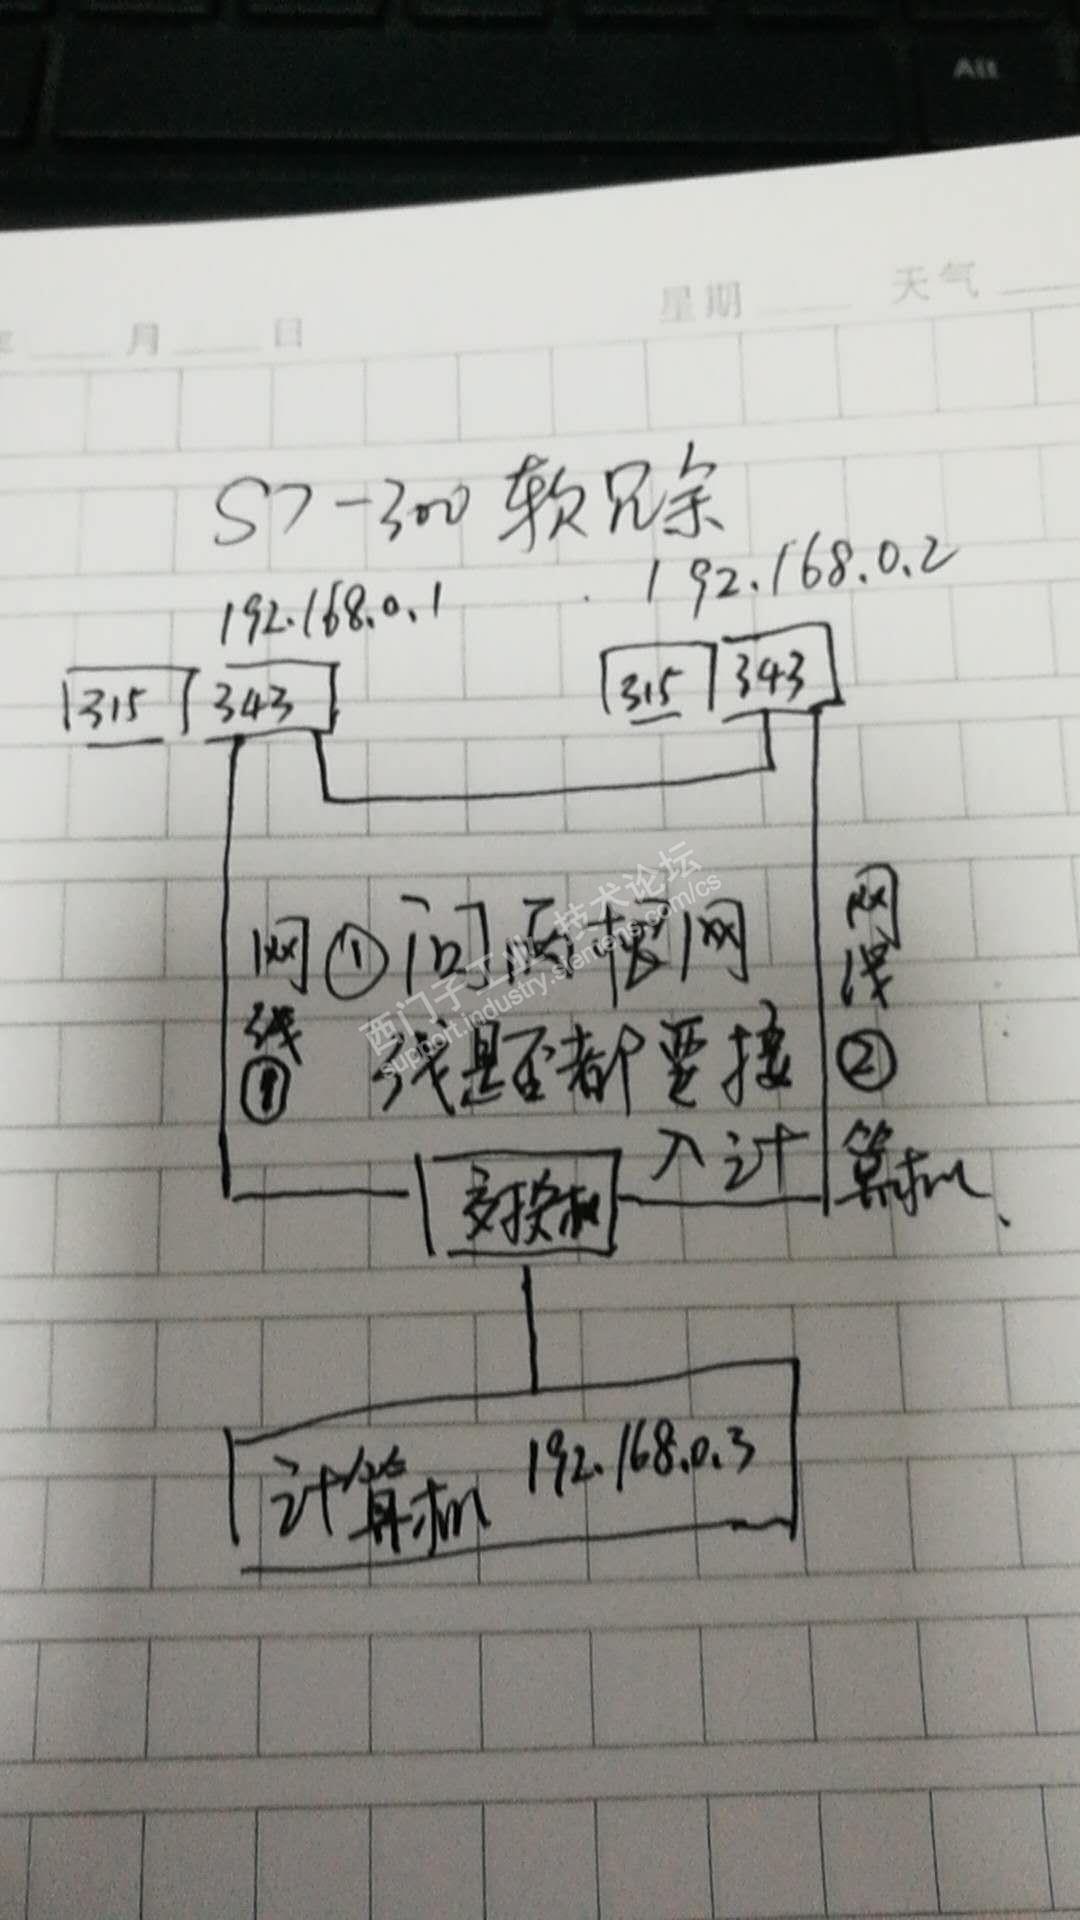 Alt
年 月 日 星期 天气
S7-300 软冗余
192.168.0.1 192.168.0.2
315 343 315 343
网线① ①问两根网线是否都要接入计算机、 网线②
交换机
计算机 192.168.0.3
西门子工业 技术论坛
support.industry.siemens.com/cs